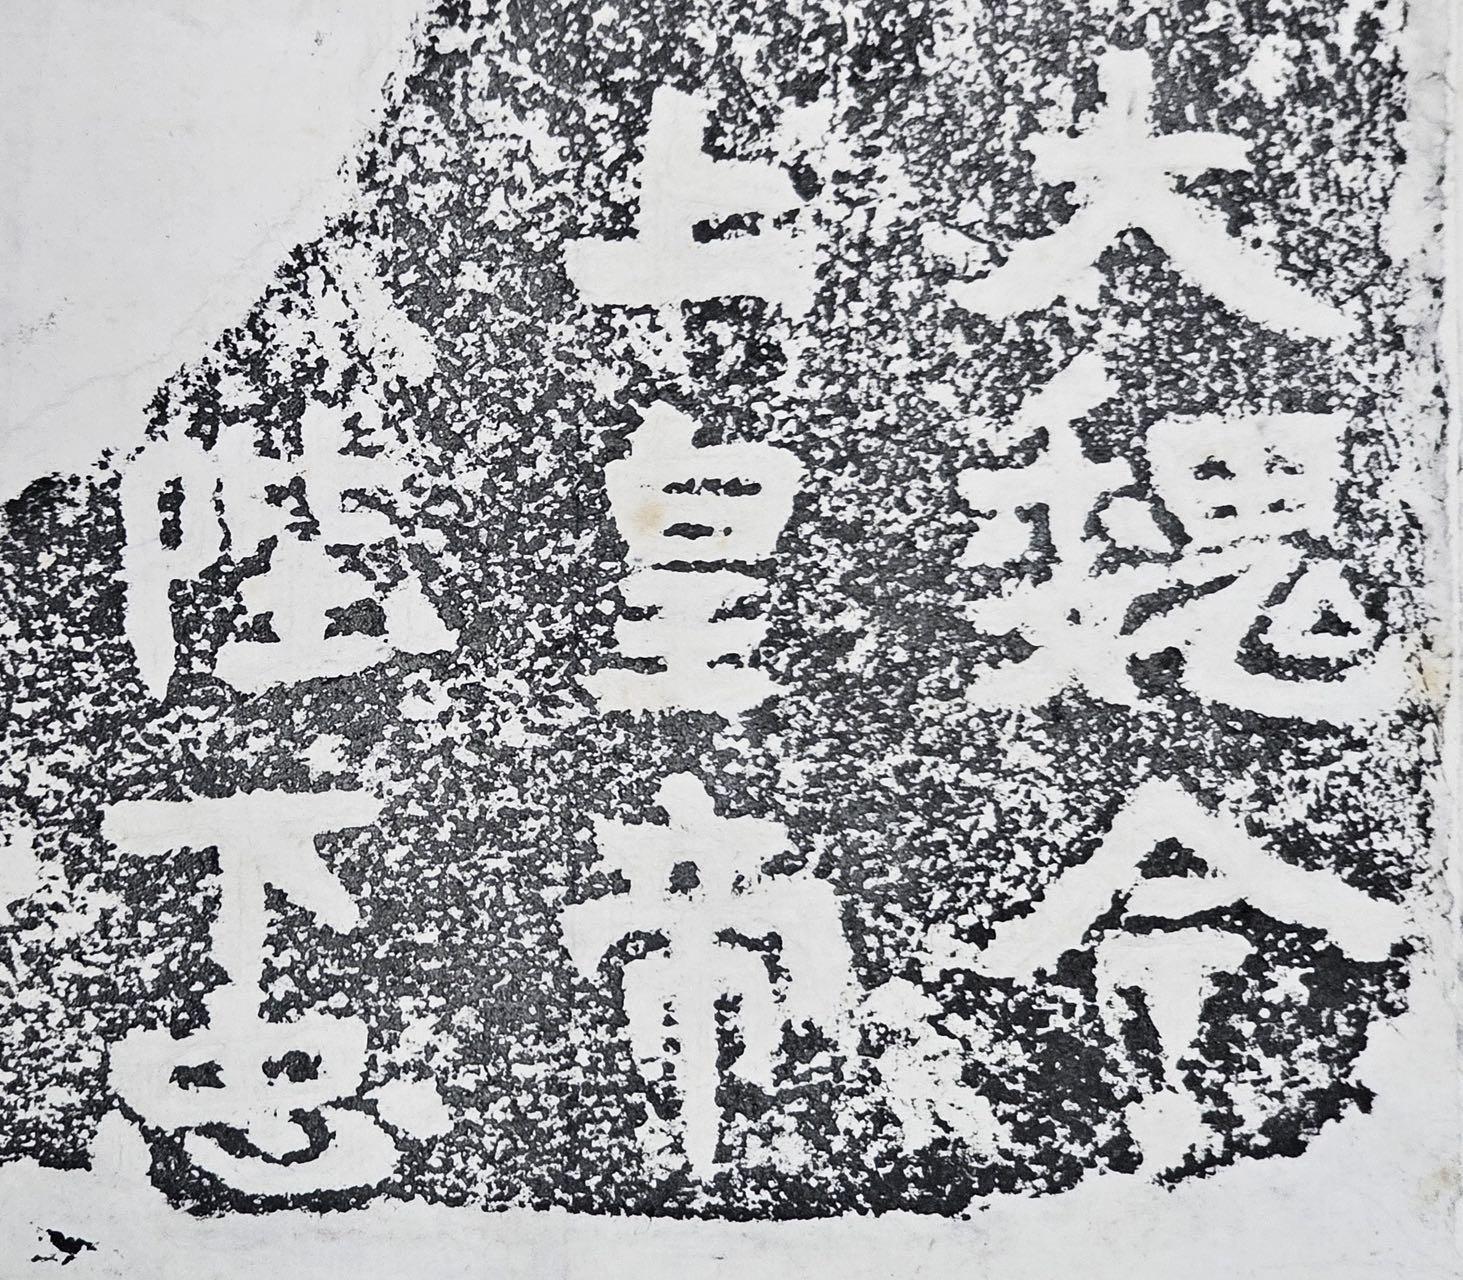 大魏今
上皇帝
陛下忠